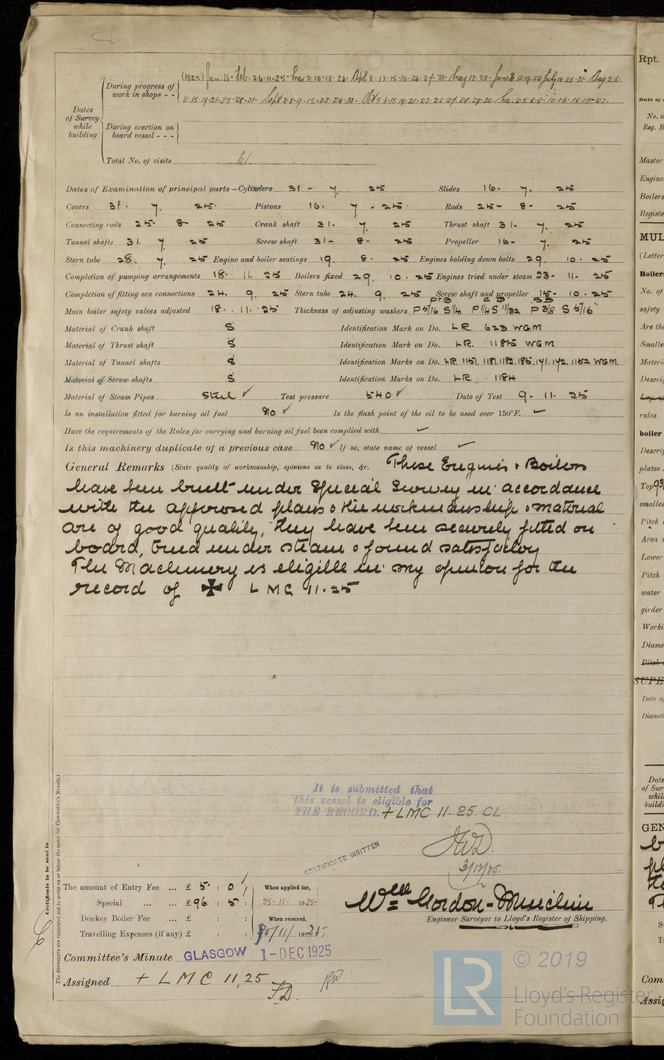 Dates of Survey while building
During progress of work in shops - -
During erection on board vessel - - -
Total No. of visits 61
Dates of Examination of principal parts—Cylinders 31 - 7. 25 Slides 16. 7. 25
Covers 31. 7. 25. Pistons 16. 7. 25. Rods 25 - 8 - 25
Connecting rods 25. 8. 25 Crank shaft 31. 7. 25 Thrust shaft 31. 7. 25
Tunnel shafts 31. 7. 25 Screw shaft 31 - 8 - 25 Propeller 16 - 7. 25
Stern tube 28. 7. 25 Engine and boiler seatings 19. 8. 25 Engines holding down bolts 29. 10. 25
Completion of pumping arrangements 18. 11. 25 Boilers fixed 29. 10. 25 Engines tried under steam 23 - 11 - 25
Completion of fitting sea connections 24. 9. 25 Stern tube 24. 9. 25 Screw shaft and propeller 15 - 10. 25
Main boiler safety valves adjusted 18. 11. 25 Thickness of adjusting washers
Material of Crank shaft S Identification Mark on Do. LR 623 WGM
Material of Thrust shaft S Identification Mark on Do. LR. 1185 WGM
Material of Tunnel shafts S Identification Marks on Do. LR 1151 1181 1182 1185 1141 1142 1152 WGM
Material of Screw shafts S Identification Marks on Do. LR. 1184
Material of Steam Pipes Steel ✓ Test pressure 540 ✓ Date of Test 9 - 11. 25
Is an installation fitted for burning oil fuel No ✓ Is the flash point of the oil to be used over 150°F. ✓
Have the requirements of the Rules for carrying and burning oil fuel been complied with ✓
Is this machinery duplicate of a previous case No ✓ If so, state name of vessel ✓
General Remarks (State quality of workmanship, opinions as to class, &c. These Engines & Boilers
have been built under Special Survey in accordance
with the approved plans & the workmanship & material
are of good quality, they have been securely fitted on
board, tried under steam & found satisfactory
The Machinery is eligible in my opinion for the
record of ✠ LMC 11.25
It is submitted that
this vessel is eligible for
THE RECORD. + LMC 11.25. CL.
JWD.
3/12/25.
CERTIFICATE WRITTEN
Certificate to be sent to
The Surveyors are requested not to write on or below the space for Committee's Minute.
The amount of Entry Fee ... £ 5 : 0 : When applied for,
Special ... ... £ 96 : 5 : 25 . 11 . 1925
Donkey Boiler Fee ... £ : : When received,
Travelling Expenses (if any) £ : : 30/11/1925
Wm Gordon-Muchlin
Engineer Surveyor to Lloyd's Register of Shipping.
Committee's Minute GLASGOW 1 - DEC 1925
Assigned + LMC 11,25
© 2019
LR
Lloyd's Register
Foundation